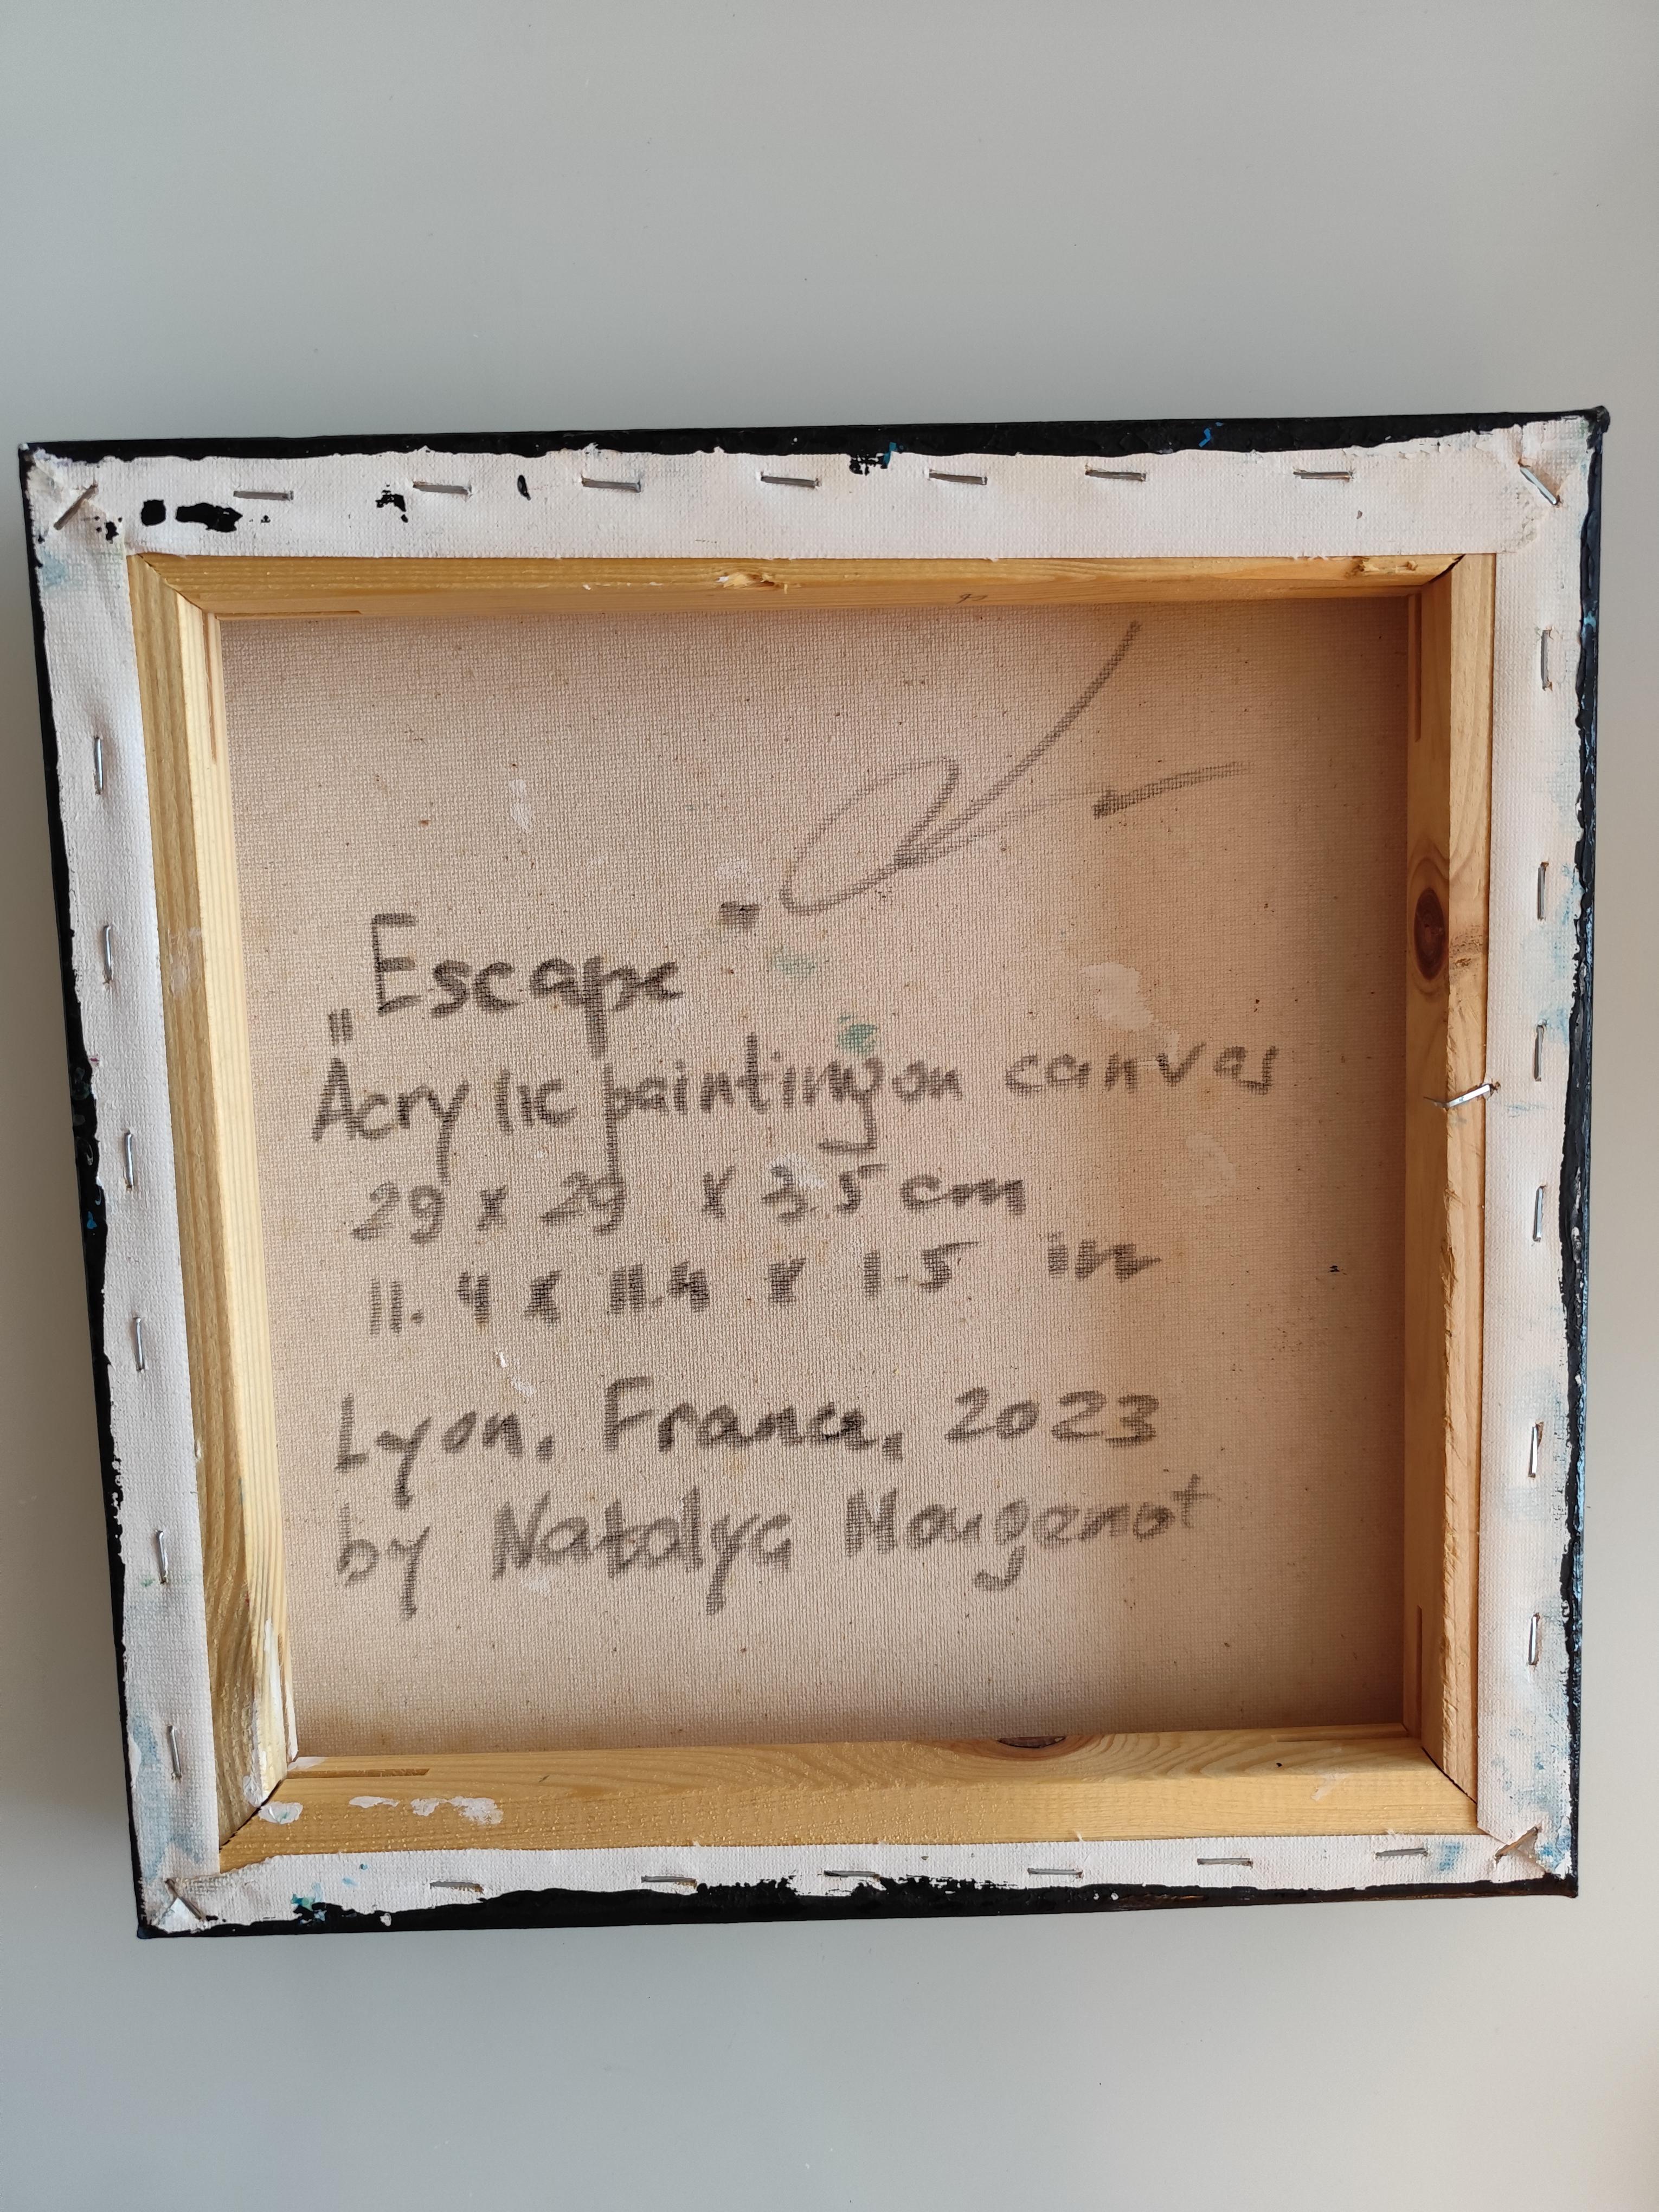 „Escape"
Acrylic painting on canvas
29 x 29 x 3.5 cm
11.4 x 11.4 x 1.5 in
Lyon, France, 2023
by Natalya Mougenot